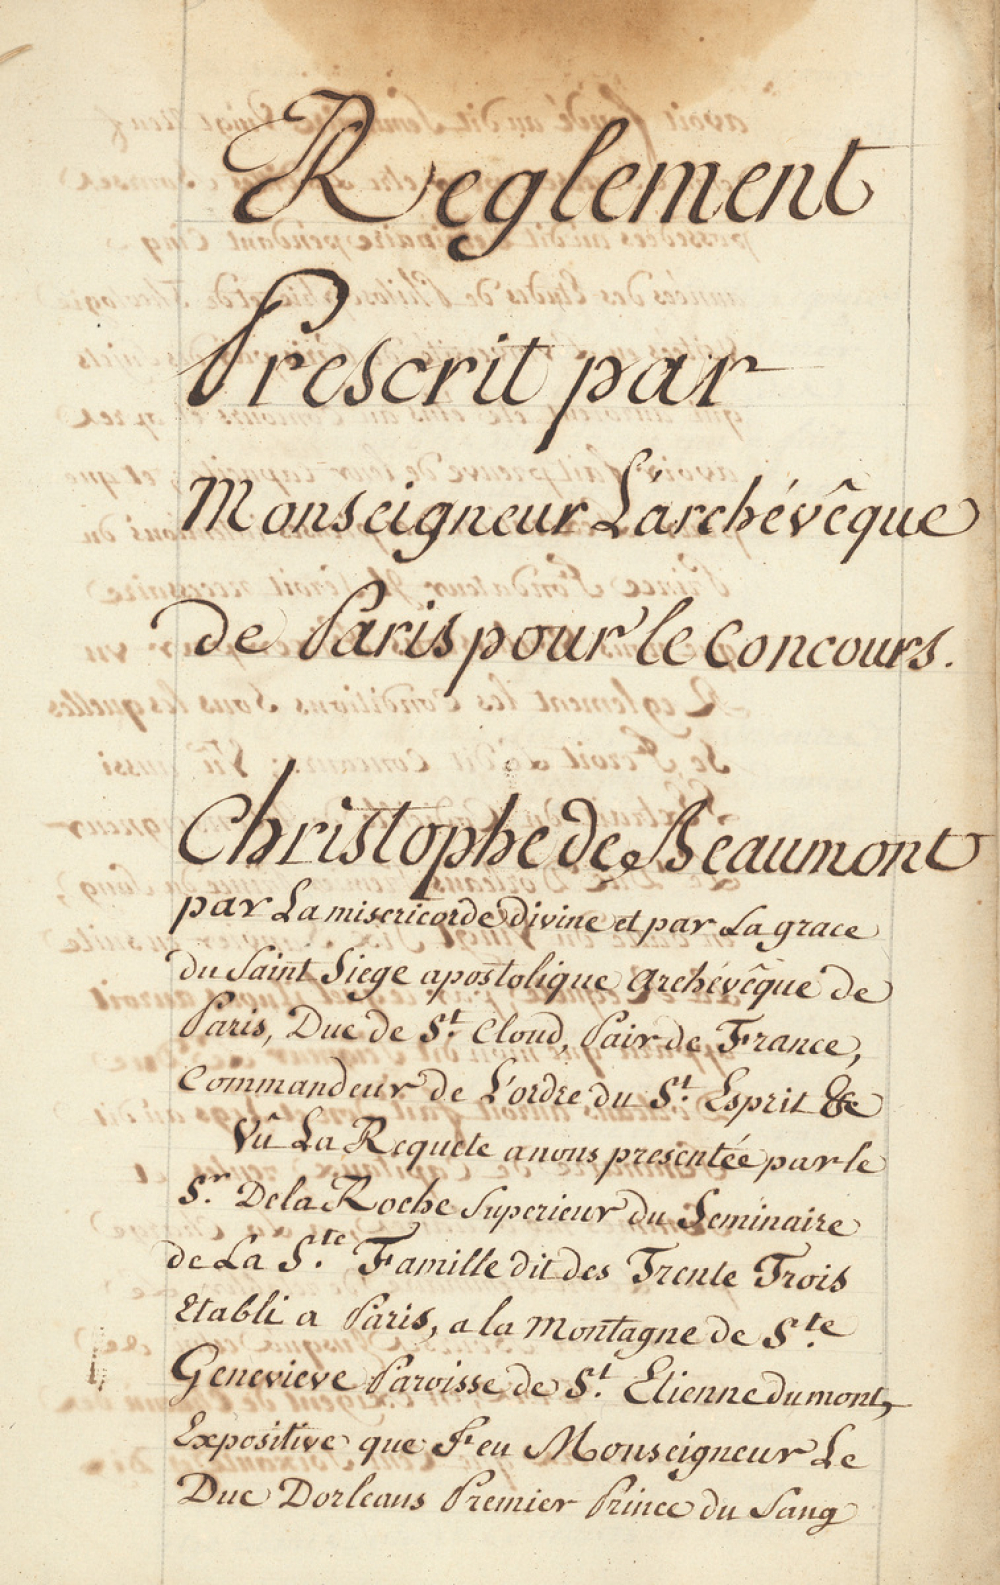 Reglement
Prescrit par
Monseigneur L'archévêque
de Paris pour le Concours.
Christophe de Beaumont
par La misericorde divine et par La grace
du Saint Siege apostolique Archévêque de
Paris, Duc de S.t Cloud, Pair de France,
Commandeur de L'ordre du S.t Esprit &c
Vû La Requete a nous presentée par le
S.r De la Roche Superieur du Seminaire
de La S.te Famille dit des Trente Trois
Etabli a Paris, a la Montagne de S.te
Genevieve Paroisse de S.t Etienne du mont,
Expositive que Feu Monseigneur Le
Duc Dorleans Premier Prince du Sang